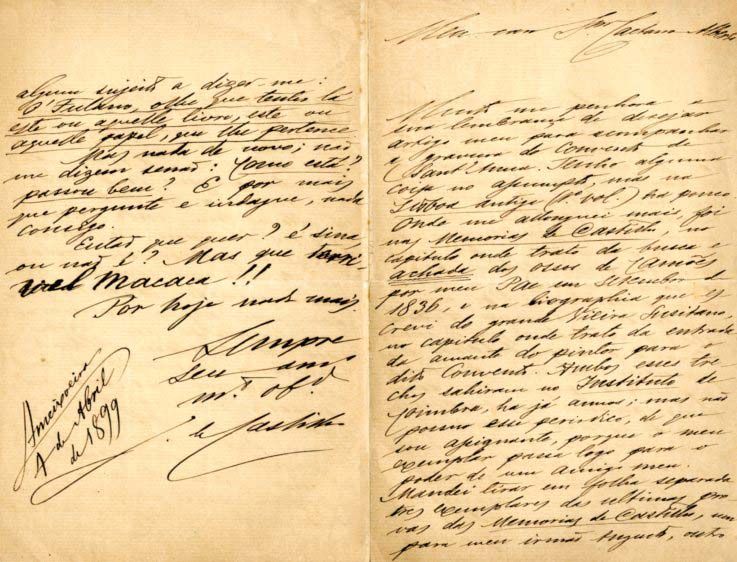 Meu caro Snr Caetano Alberto
Muito me penhora a
sua lembrança de desejar
artigo meu para acompanhar
a gravura do Convento de
Sant'Anna. Tenho alguma
coisa no apumpto, mas na
Lisboa antiga (5º vol.) ha pouco.
Onde me alonguei mais, foi
nas Memorias de Castilho, no
capitulo onde trato da busca e
achada dos ossos de Camões
por meu Pae em Setembro de
1836, e na biographia que es
crevi do grande Vieira Lusitano,
no capitulo onde trato da entrada
da amante do pintor para o
dito Convento. Ambos esses tre-
chos sahiram no Instituto de
Coimbra, ha já annos; mas não
possuo esse periodico, de que
sou assignante, porque o meu
exemplar passa logo para o
poder de um amigo meu.
Mandei tirar em folha separada
tres exemplares das ultimas pro
vas das Memorias de Castilho, um
para meu irmão Augusto, outro
algum sujeito a dizer-me:
Ó Fulano, olhe que tenho lá
este ou aquelle livro, este ou
aquelle papel, que lhe pertence.
Mas nada de novo; não
me dizem senão: Como está?
passou bem? E por mais
que pergunte e indague, nada
consigo.
Então que quer? é sina,
ou não é? Mas que terri-
vel macaca!!
Por hoje nada mais.
Sempre
Seu amo
mto obdo
J. de Castilho
Ameixoeira
4 de Abril
de 1899